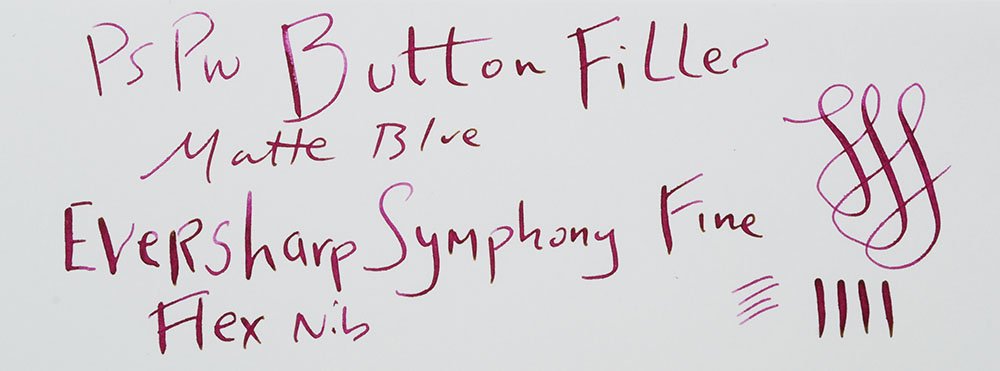 PsPw Button Filler
Matte Blue
Eversharp Symphony Fine
Flex Nib